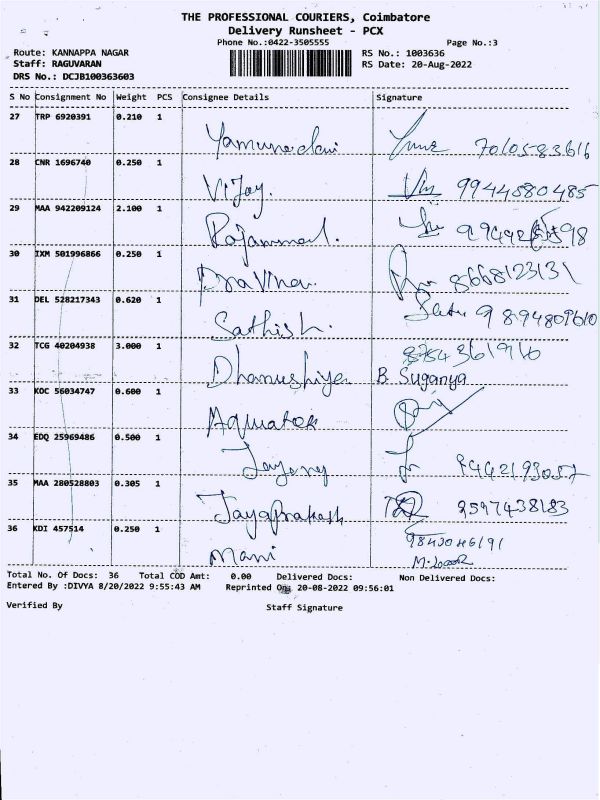 THE PROFESSIONAL COURIERS, Coimbatore
Delivery Runsheet - PCX
Phone No.:0422-3505555 Page No.:3
Route: KANNAPPA NAGAR RS No.: 1003636
Staff: RAGUVARAN RS Date: 20-Aug-2022
DRS No.: DCJB100363603
S No Consignment No Weight PCS Consignee Details Signature
27 TRP 6920391 0.210 1
Yamunadevi 7010583616
28 CNR 1696740 0.250 1
Vijay. 9944580485
29 MAA 942209124 2.100 1
Rajammal.
30 IXM 501996866 0.250 1
Pravina. 8668123131
31 DEL 528217343 0.620 1
Sathish. 9894809610
32 TCG 40204938 3.000 1 8754361916
Dhanushiya B. Suganya
33 KOC 56034747 0.600 1
Aquatek
34 EDQ 25969486 0.500 1
9442193057
35 MAA 280528803 0.305 1
Jayaprakash 9597438183
36 KDI 457514 0.250 1 9843046191
Mani
Total No. Of Docs: 36 Total COD Amt: 0.00 Delivered Docs: Non Delivered Docs:
Entered By :DIVYA 8/20/2022 9:55:43 AM Reprinted On: 20-08-2022 09:56:01
Verified By Staff Signature